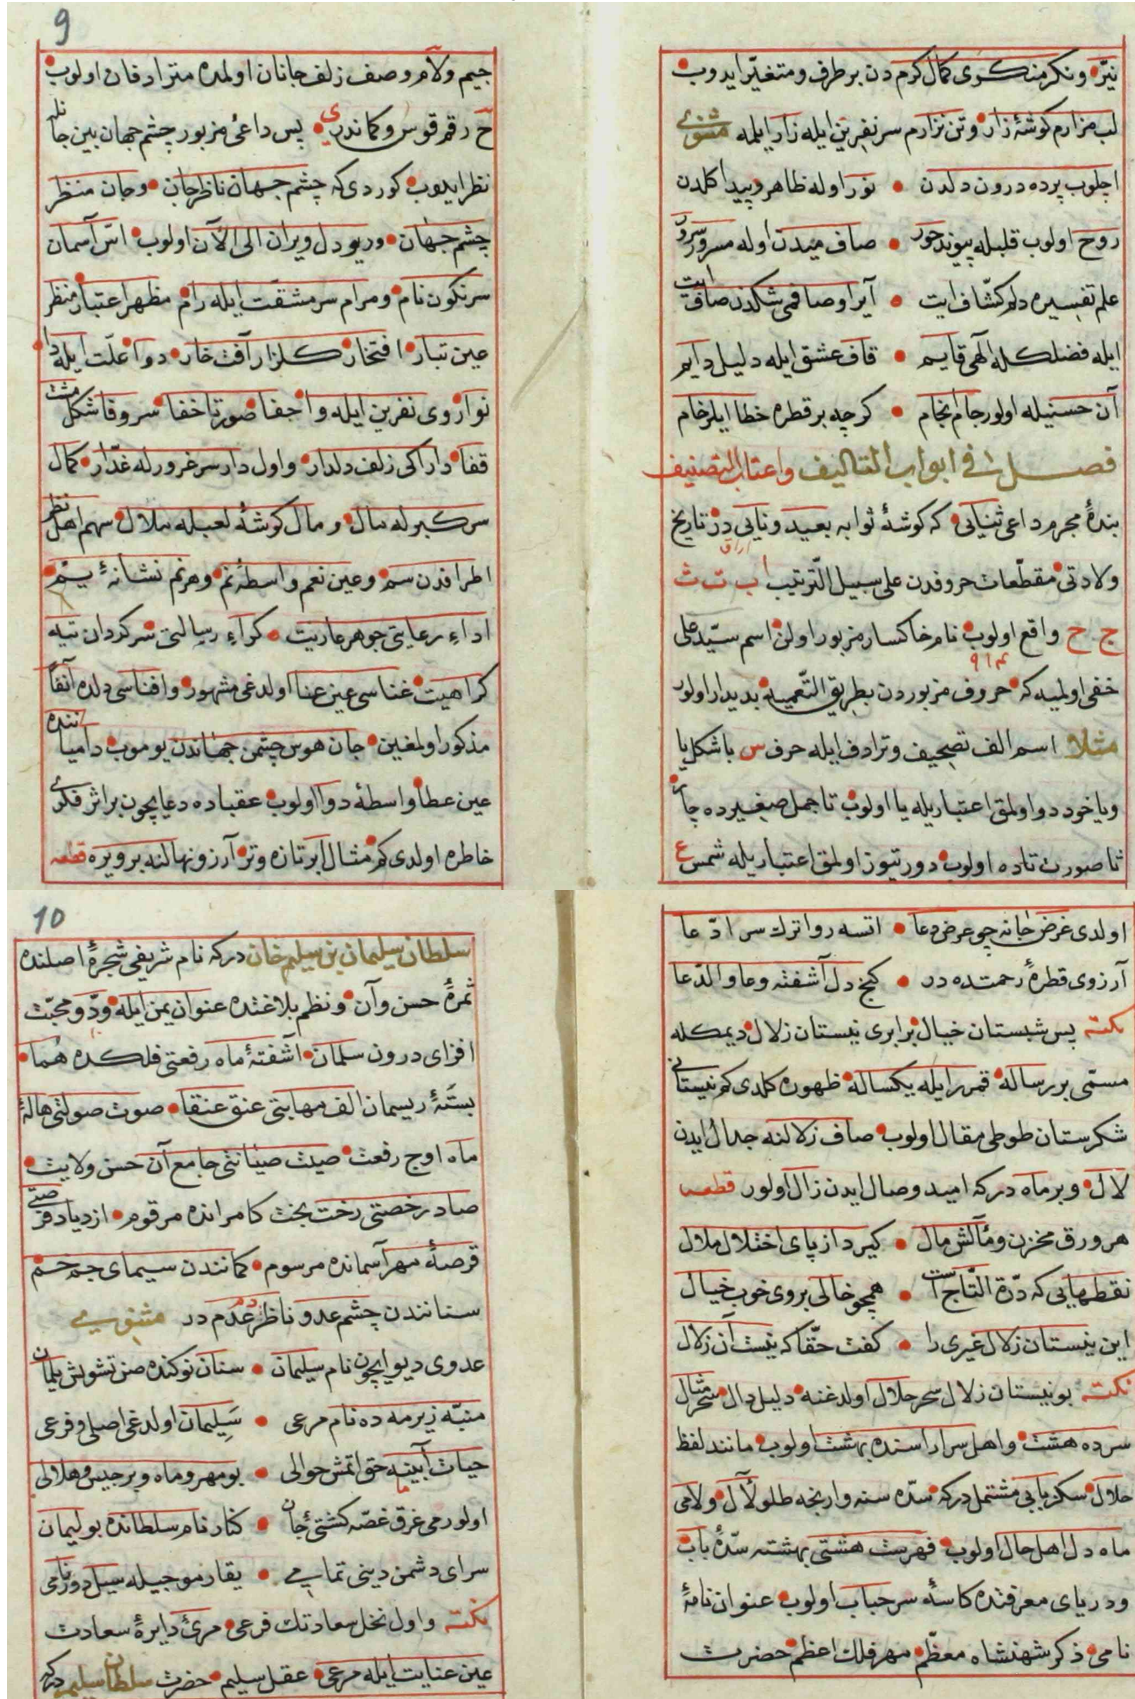 نیّر ونکر منکوی کمال کرم دن بر طرف و متغیّر ایدوب
لب مزارم کوشهٔ زار وتن نزارم سر نفرین ایله زار ایلمه مثنوی
اچلوب پرده درون دلدن نور اوله ظاهر وپیدا کلدن
روح اولوب قلبیله پیوند حور صاف میدن اوله مسرور سرور
علم تفسیره دلم کشّاف ایت آیر اوصافمی شکدن صاف ایت
ایله فضلکله الهی قایم قاف عشق ایله دلیل دایم
آن حسنیله اولور جام انجام کرچه بر قطره خطا ایلر خام
فصل فی ابواب التالیف واعتاب التصنیف
بندهٔ مجرم داعی ثنایی که کوشهٔ ثوابه بعید ونایی در تاریخ
ولادتی مقطّعات حروفدن علی سبیل الترتیب ا ب ت ث
ج ح واقع اولوب نام خاکسار مزبور اولن اسم سیّد علی
۹۱۴
خفی اولمیه که حروف مزبوردن بطریق التّعمیه بدیدار اولور
مثلا اسم الف تصحیف وترادف ایله حرف س با شکل یا
ویاخود دو اولمق اعتباریله یا اولوب تا جمل صغیرده جانه
ثا صورت تاده اولوب دورتیوز اولمق اعتباریله شمس ع
9
جیم ولام وصف زلف جانان اولمده مترادفان اولوب
ح رقم قوس وکماندن ی پس داعئ مزبور چشم جهان بین جانله
نظر ایدوب کوردی که چشم جهان ناظر جان وجان منظر
چشم جهان وریو دل ویران الی الآن اولوب اسّ آسمان
سرنکون نام ومرام سر مشقّت ایله رام مظهر اعتبار منظر
عین تبار افتخار کلزار آفت خار دوا علّت ایله دا
نوا روی نفرین ایله وا جفا صورتا خفا سر وقا شکل مثت
قفا دارا کی زلف دلدار واول دار سر غرورله غدّار کمال
سر کبرله مال ومال کوشهٔ لعبله ملال سهم اهل نظر
اطرافدن سم وعین نعم واسطهٔ نم وهر نم نشانهٔ یم
اداء رعایتی جوهر عاریت کراء رسالتی سرکردان تیه
کراهیت غناسی عین عنا اولدغی مشهور وافناسی دلده آنفا
مذکور اولمغین جان هوس چشمن جهاندن یوموب دامیاننده
عین عطا واسطهٔ دوا اولوب عقباده دعا ایچون بر اثر فکری
خاطره اولدی کم مثال ابر تازه وتر آرزو نهالنه بر ویره قطعه
اولدی غرض جانه چو عرض دعا اتسه روا ترک سر ادّعا
آرزوی قطرهٔ رحمتده در کنج دل آشفته وعا والدّعا
نکته پس شبستان خیال برابری نیستان زلال دیمکله
مسمّی بر رساله قمر ایله یکساله ظهوره کلدی کم نیستانی
شکرستان طوطی مقال اولوب صاف زلالنه جدال ایدن
لال وبر ماه درکه امید وصال ایدن زال اولور قطعه
هر ورق مخزن ومآلش مال کیرد از پای اختلال ملال
نقطهایی که درّة التّاج است همچو خالی بروی خوب خیال
این نیستان زلال غیری را کفت حقّا که نیست آن زلال
نکته بو نیستان زلال سحر حلال اولدغنه دلیل دال سحر مثال
سرده هشت واهل سرار اسنده بهشت اولوب مانند لفظ
حلال سکز بابی مشتمل درکه سدّه سنه وارنجه طلو لآل ولامی
ماه دل اهل حال اولوب فهرست هشتی بهشته سدّهٔ باب
ودریای معرفتده کاسهٔ سر حباب اولوب عنوان نامهٔ
نامی ذکر شهنشاه معظّم مهر فلک اعظم حضرت
10
سلطان سلیمان بن سلیم خان درکه نام شریفی شجرهٔ اصلنده
ثمرهٔ حسن وآن ونظم بلاغتده عنوان یمن ایله ودّ ومحبّت
افزای درون سلمان آشفتهٔ ماه رفعتی فلکده هما
بستهٔ ریسمان الف مهابتی عنق عنقا صوت صولتی هالهٔ
ماه اوج رفعت صیت صیانتی جامع آن حسن ولایت
صاد رخصتی رخت بخت کامرانده مرقوم ازدیاد فرصتی
قرصهٔ مهر آسمانده مرسوم کمانندن سیمای جم خم
سنانندن چشم عدو ناظر عدم در مثنوی
عدوی دیو ایچون نام سلیمان سنان نوکنده صن تشویش یلمان
منبّه زیرمه ده نام مرعی سَلِیمان اولدغی اصلی وفرعی
حیات آیینه حق اتمش حوالی بو مهر وماه وبرجیس وهلالی
اولورمی غرق غصّه کشتئ جان کنار نام سلطانده بو لیمان
سرای دشمن دینی تمامی یقار موجیله سیل دور نامی
نکته واول نخل سعادتک فرعی مرئ دایرهٔ سعادت
عین عنایت ایله مرعی عقل سلیم حضرت سلطان سلیم درکه